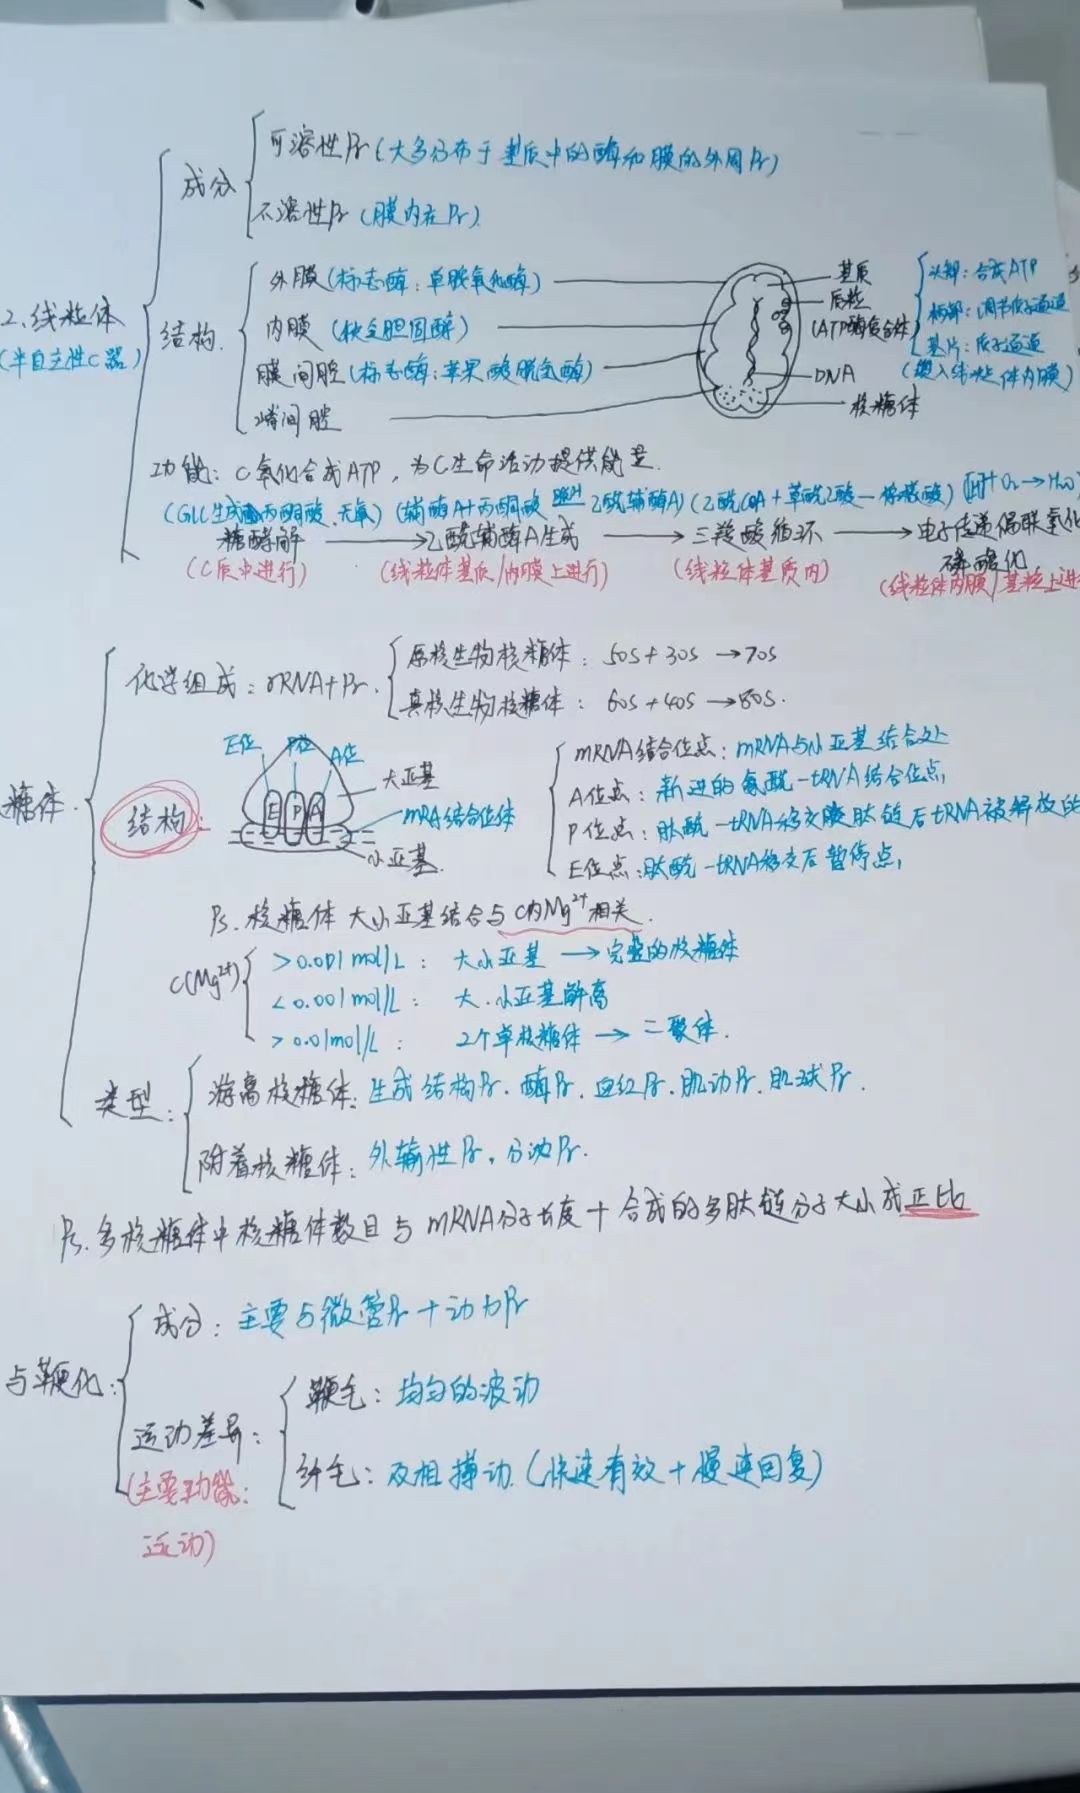 2、线粒体
(半自主性C器)
成分
可溶性Pr(大多分布于基质中的酶和膜的外周Pr)
不溶性Pr (膜内在Pr).
结构
外膜(标志酶:单胺氧化酶)
内膜 (缺乏胆固醇)
膜间腔(标志酶:苹果酸脱氢酶)
嵴间腔
基质
(ATP酶复合体)
DNA
核糖体
头部:合成ATP
柄部:调节质子通道
基片:质子通道
(嵌入线粒体内膜)
功能:C氧化合成ATP,为C生命活动提供能量.
(Glc生成丙酮酸、无氧) (辅酶A+丙酮酸 乙酰辅酶A) (乙酰CoA+草酰乙酸—柠檬酸) [H]+O₂→H₂O)
糖酵解 → 乙酰辅酶A生成 → 三羧酸循环 → 电子传递偶联氧化
磷酸化
(C质中进行) (线粒体基质/内膜上进行) (线粒体基质内) (线粒体内膜/基粒上进
糖体.
化学组成:rRNA+Pr.
原核生物核糖体: 50S+30S→70S
真核生物核糖体: 60S+40S→80S.
结构:
E位 P位 A位
E P A
大亚基
结合位体
小亚基.
mRNA结合位点:mRNA与小亚基结合处
A位点:新进的氨酰-tRNA结合位点,
P位点:肽酰-tRNA移交肽链后tRNA被释放的
E位点:肽酰-tRNA移交后暂停点,
Ps.核糖体大小亚基结合与C内Mg²⁺相关.
C(Mg²⁺)
>0.001mol/L: 大小亚基→完整的核糖体
<0.001mol/L: 大.小亚基解离
>0.01mol/L: 2个单核糖体→二聚体.
类型:
游离核糖体:生成结构Pr.酶Pr.血红Pr.肌动Pr.肌球Pr.
附着核糖体:外输性Pr,分泌Pr.
Ps.多核糖体中核糖体数目与mRNA分子长度+合成的多肽链分子大小成正比
成分:主要与微管Pr+动力Pr
运动差异:
(主要功能:
运动)
鞭毛:均匀的波动
纤毛:双相搏动.(快速有效+慢速回复)